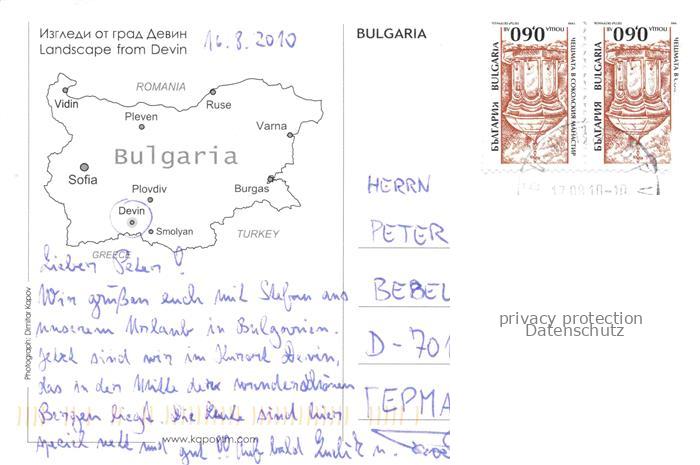 Изгледи от град Девин
Landscape from Devin
16.8.2010
BULGARIA
ROMANIA
Vidin
Ruse
Pleven
Varna
Bulgaria
Sofia
Plovdiv
Burgas
Devin
Smolyan
TURKEY
GREECE
Photograph: Dimitar Kapov
Lieber Peter!
Wir grüßen euch mit Stefan aus
unserem Urlaub in Bulgarien.
Jetzt sind wir im Kurort Devin,
das in der Mitte der wunderschönen
Bergen liegt. Die Leute sind hier
speziell nett und gut !!! Auf bald
www.kapovfm.com
БЪЛГАРИЯ BULGARIA
0,60
ЧЕШМАТА В СОКОЛСКИЯ МАНАСТИР
БЪЛГАРИЯ BULGARIA
0,60
ЧЕШМАТА В
17.08.10-10
HERRN
PETER
BEBEL
D-701
ГЕРМА
privacy protection
Datenschutz